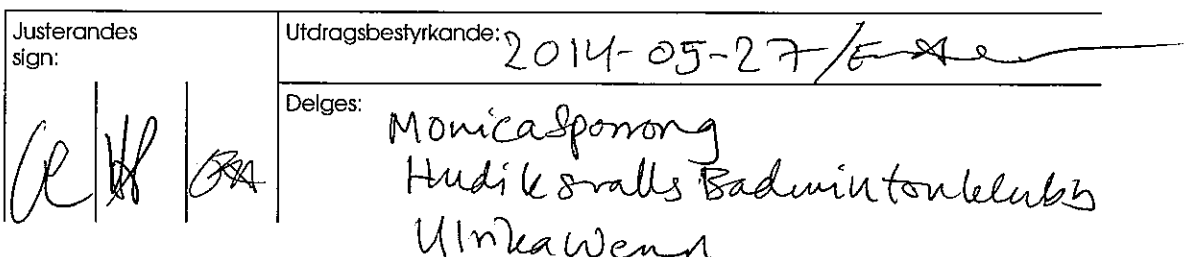 Justerandes
sign:
Utdragsbestyrkande: 2014-05-27/
Delges: Monica Sporrong
Hudiksvalls Badmintonklubb
Ulrika Wenn